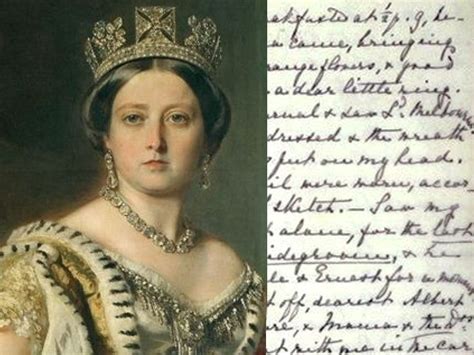 akfasted at ½ p. 9, be-
came, bringing
range flowers, & good
a dear little ring.
urnal & saw Ld Melbourne
dressed & the wreath
put on my head.
il were
sketch. – Saw my
alone, for the last
idegroom, & the
le & Ernest for a mom
off, dearest Albert
re, & Mama & the
t with me in the car